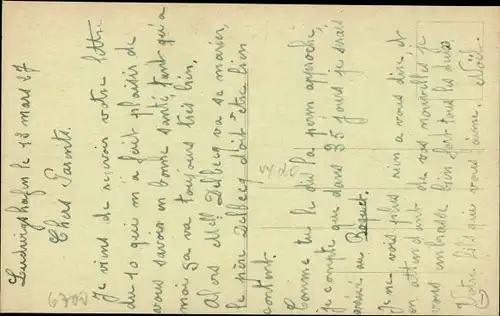 Ludwigshafen le 13 mars 27
Chers Parents.
Je viens de recevoir votre lettre
du 10 qui m'a fait plaisir de
vous savoir en bonne santé, tant qu'a
moi sa va toujours très bien.
Alors Mell Delbecq va se marier,
le père Delbecq doit être bien
content.
Comme tu le dis la perm approche,
je compte que dans 35 jours je serai
arrivé au Boquet.
Je ne vois plus rien a vous dire et
en attendant de vos nouvelles je
vous embrasse bien fort tous les deux.
Votre fils que vous aime. Noël.